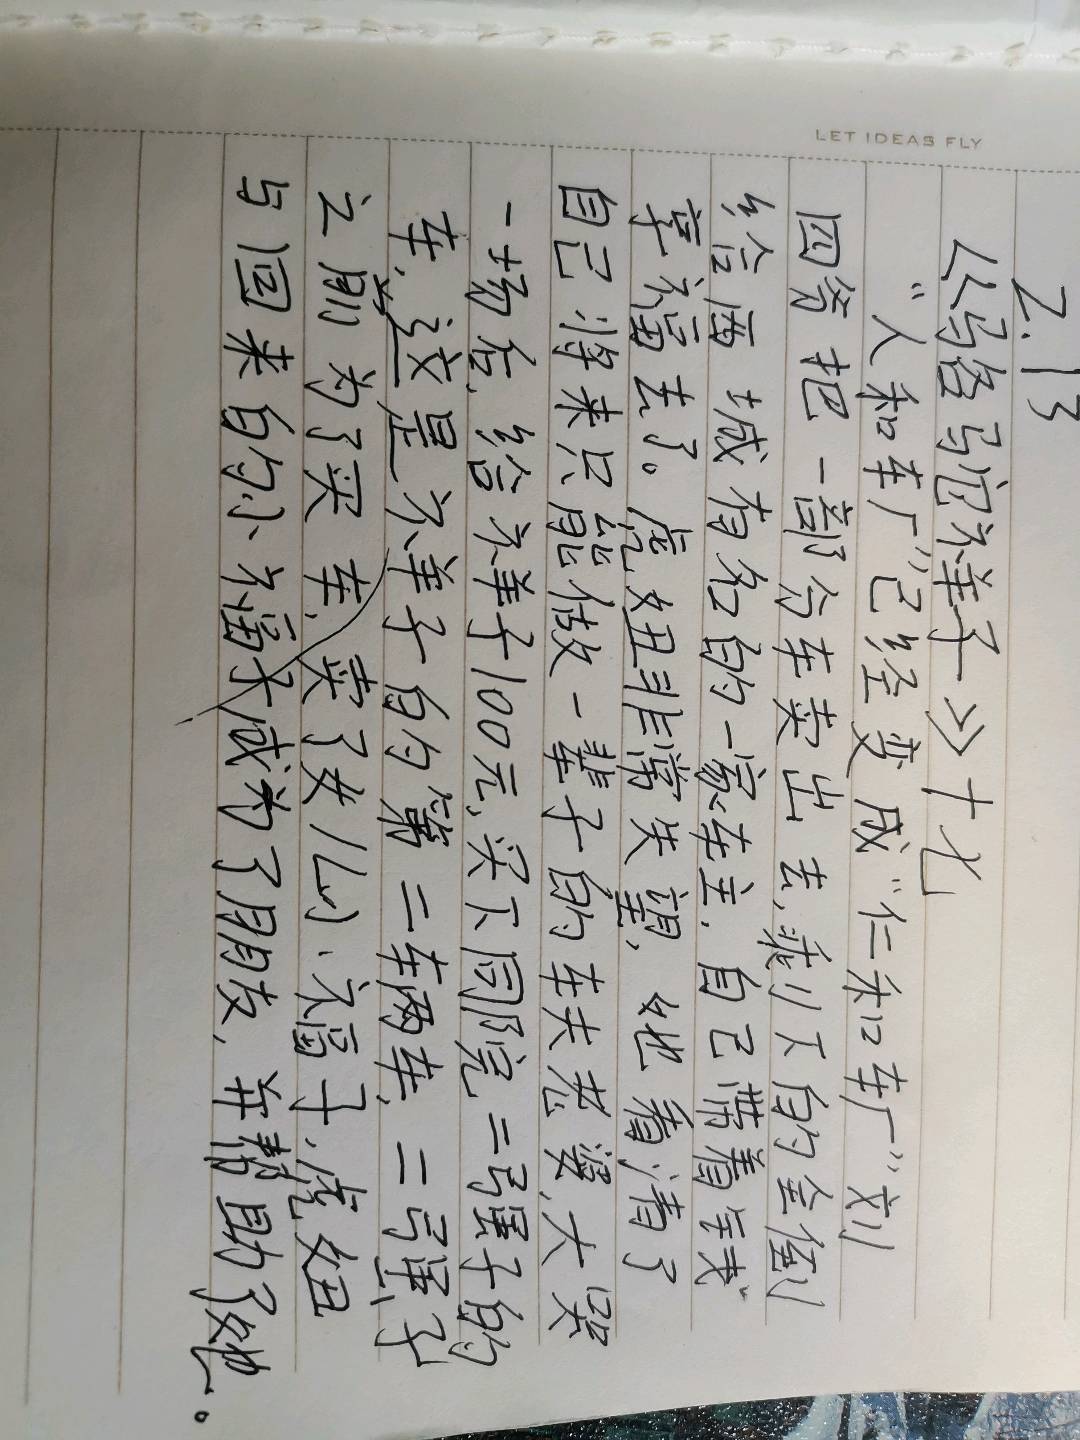 LET IDEAS FLY
2.13
《骆驼祥子》十七
“人和车厂”已经变成“仁和车厂”刘
四爷把一部分车卖出去,乘下的全倒
给西城有名的一家车主.自己带着钱
享福去了。虎妞非常失望,她看清了
自己将来只能做一辈子的车夫老婆,大哭
一场后,给祥子100元,买下同院二强子的
车,这是祥子的第二车两车,二强子
之刚为了买车,卖了女儿小福子,虎妞
与回来的小福子成为了朋友,并帮助了她。